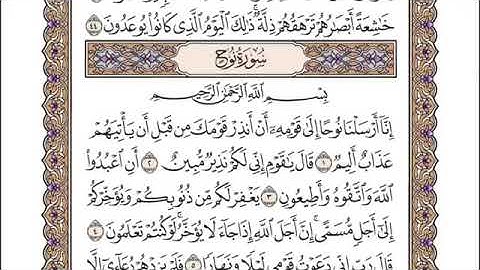 خَٰشِعَةً أَبْصَٰرُهُمْ تَرْهَقُهُمْ ذِلَّةٌ ۚ ذَٰلِكَ ٱلْيَوْمُ ٱلَّذِى كَانُوا۟ يُوعَدُونَ ٤٤
سُورَةُ نُوحٍ
بِسْمِ ٱللَّهِ ٱلرَّحْمَٰنِ ٱلرَّحِيمِ
إِنَّآ أَرْسَلْنَا نُوحًا إِلَىٰ قَوْمِهِۦٓ أَنْ أَنذِرْ قَوْمَكَ مِن قَبْلِ أَن يَأْتِيَهُمْ
عَذَابٌ أَلِيمٌ ١ قَالَ يَٰقَوْمِ إِنِّى لَكُمْ نَذِيرٌ مُّبِينٌ ٢ أَنِ ٱعْبُدُوا۟
ٱللَّهَ وَٱتَّقُوهُ وَأَطِيعُونِ ٣ يَغْفِرْ لَكُم مِّن ذُنُوبِكُمْ وَيُؤَخِّرْكُمْ
إِلَىٰٓ أَجَلٍ مُّسَمًّى ۚ إِنَّ أَجَلَ ٱللَّهِ إِذَا جَآءَ لَا يُؤَخَّرُ ۖ لَوْ كُنتُمْ تَعْلَمُونَ ٤
قَالَ رَبِّ إِنِّى دَعَوْتُ قَوْمِى لَيْلًا وَنَهَارًا ٥ فَلَمْ يَزِدْهُمْ دُعَآءِىٓ إِلَّا